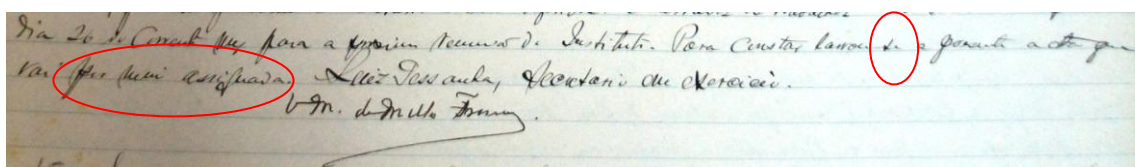 dia 26 do Corrente mez para a proxima reunião do Instituto. Para constar lavrou se a presente acta que
vai por mim assignada. Luiz Pessanha, Secretario em exercicio.
V. M. de Mello Franco.